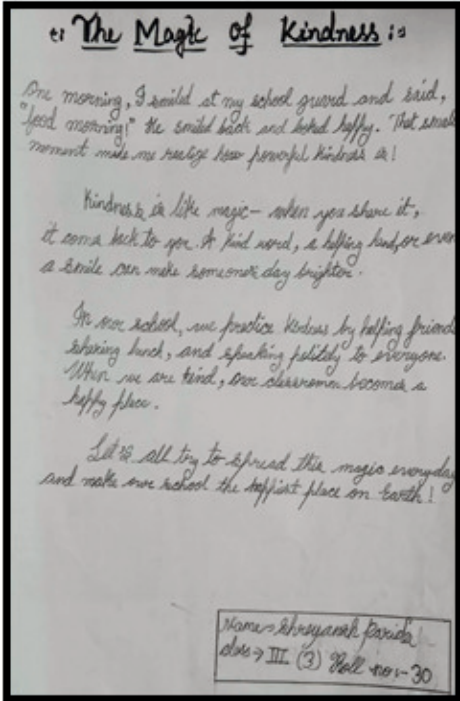 The Magic of Kindness :-
One morning, I smiled at my school guard and said,
"Good morning!" He smiled back and looked happy. That small
moment made me realize how powerful kindness is!
Kindness is like magic - when you share it,
it come back to you. A kind word, a helping hand, or even
a smile can make someone's day brighter.
In our school, we practice kindness by helping friend
sharing lunch, and speaking politely to everyone.
When we are kind, our classroom becomes a
happy place.
Let's all try to spread this magic everyday
and make our school the happiest place on Earth!
Name - Shreyansh Parida
class → III (3) Roll no:- 30